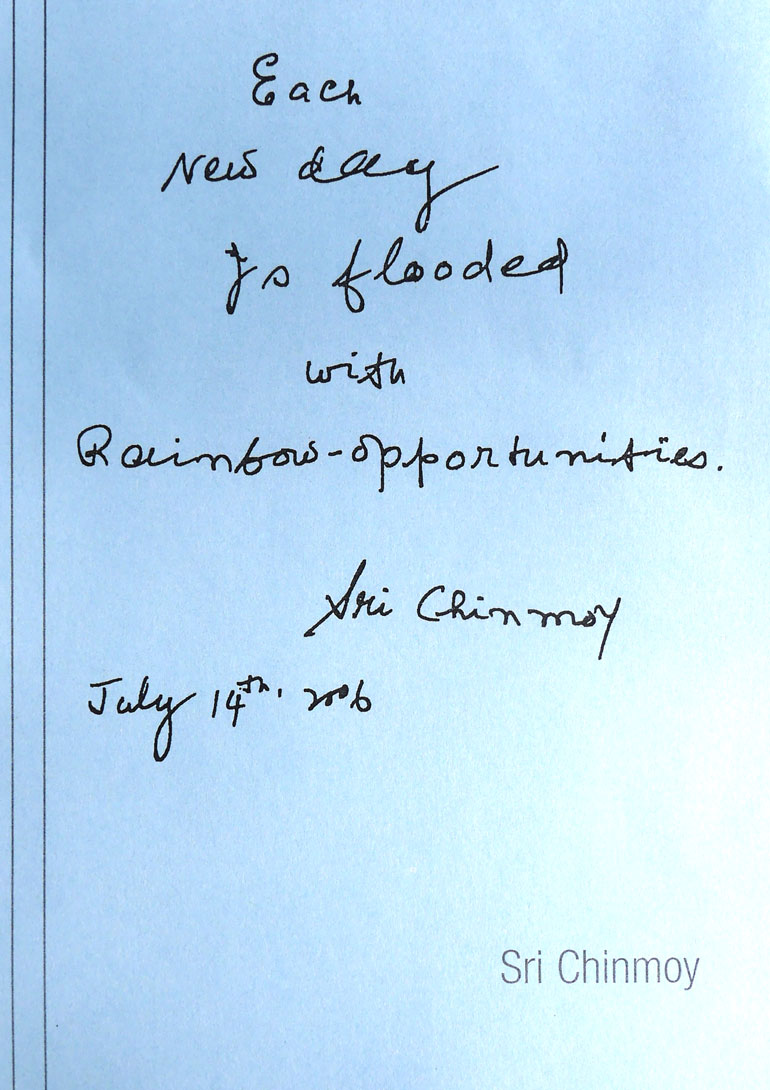 Each
New day
Is flooded
with
Rainbow-opportunities.
Sri Chinmoy
July 14th, 2006
Sri Chinmoy